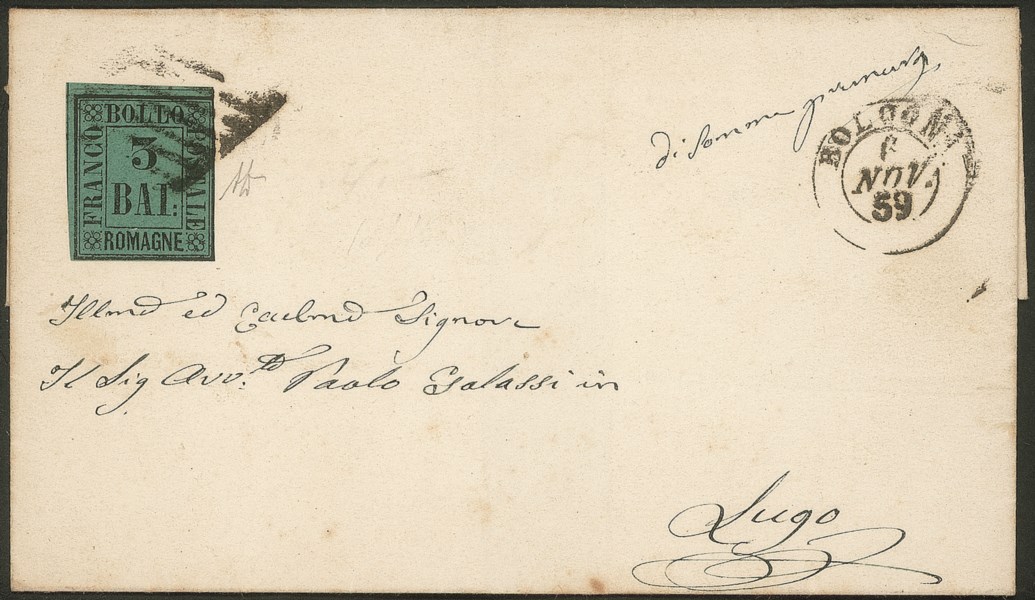 BOLLO
FRANCO
POSTALE
3
BAI:
ROMAGNE
di somma premura
BOLOGNA
6
NOV.
59
Illmo ed Eccelmo Signore
Il Sig Avv.to Paolo Galassi in
Lugo